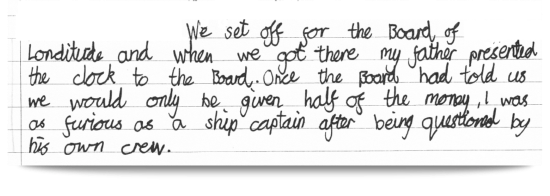 We set off for the Board of
Londitude and when we got there my father presented
the clock to the Board. Once the Board had told us
we would only be given half of the money, I was
as furious as a ship captain after being questioned by
his own crew.